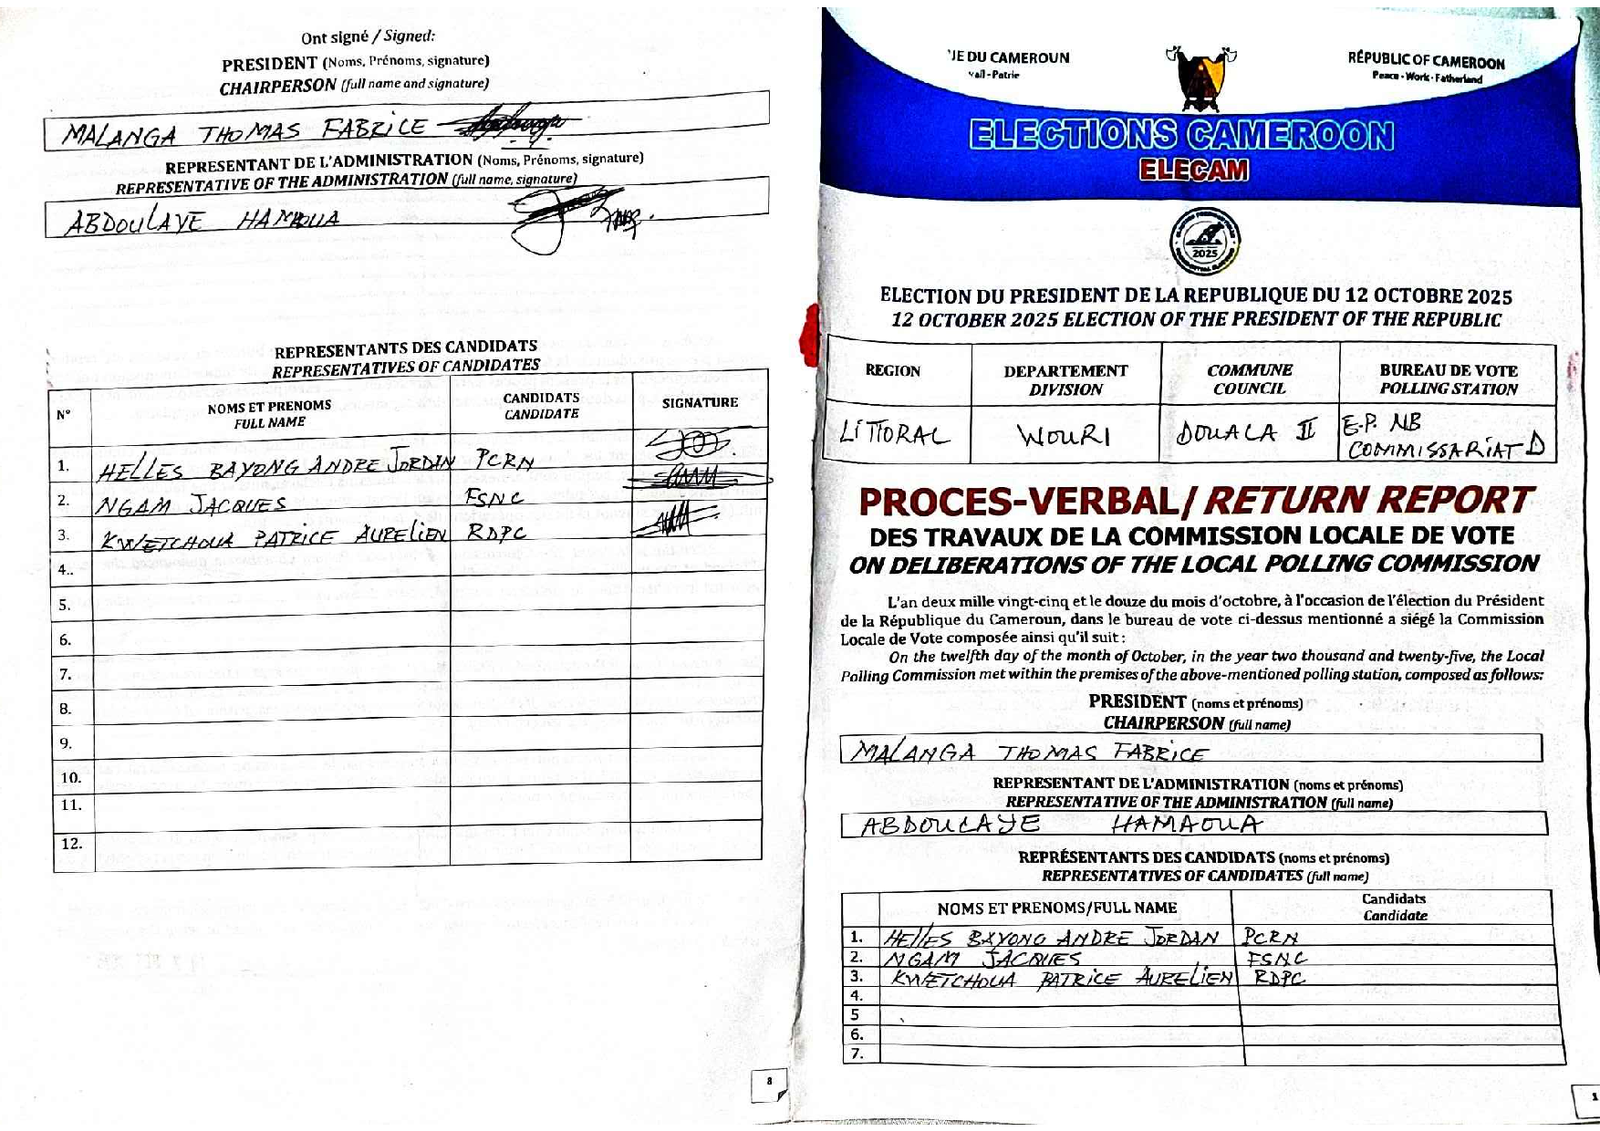 Ont signé / Signed:
PRESIDENT (Noms, Prénoms, signature)
CHAIRPERSON (full name and signature)
MALANGA THOMAS FABRICE
REPRESENTANT DE L'ADMINISTRATION (Noms, Prénoms, signature)
REPRESENTATIVE OF THE ADMINISTRATION (full name, signature)
ABDOULAYE HAMAOUA
REPRESENTANTS DES CANDIDATS
REPRESENTATIVES OF CANDIDATES
N° NOMS ET PRENOMS FULL NAME CANDIDATS CANDIDATE SIGNATURE
1. HELLES BAYONG ANDRE JORDAN PCRN
2. NGAM JACQUES FSNC
3. KWETCHOUA PATRICE AURELIEN RDPC
4..
5.
6.
7.
8.
9.
10.
11.
12.
8
'UE DU CAMEROUN
vail - Patrie
RÉPUBLIC OF CAMEROON
Peace - Work - Fatherland
ELECTIONS CAMEROON
ELECAM
2025
ELECTION DU PRESIDENT DE LA REPUBLIQUE DU 12 OCTOBRE 2025
12 OCTOBER 2025 ELECTION OF THE PRESIDENT OF THE REPUBLIC
REGION DEPARTEMENT DIVISION COMMUNE COUNCIL BUREAU DE VOTE POLLING STATION
LITTORAL WOURI DOUALA II E.P. NB COMMISSARIAT D
PROCES-VERBAL/ RETURN REPORT
DES TRAVAUX DE LA COMMISSION LOCALE DE VOTE
ON DELIBERATIONS OF THE LOCAL POLLING COMMISSION
L'an deux mille vingt-cinq et le douze du mois d'octobre, à l'occasion de l'élection du Président
de la République du Cameroun, dans le bureau de vote ci-dessus mentionné a siégé la Commission
Locale de Vote composée ainsi qu'il suit :
On the twelfth day of the month of October, in the year two thousand and twenty-five, the Local
Polling Commission met within the premises of the above-mentioned polling station, composed as follows:
PRESIDENT (noms et prénoms)
CHAIRPERSON (full name)
MALANGA THOMAS FABRICE
REPRESENTANT DE L'ADMINISTRATION (noms et prénoms)
REPRESENTATIVE OF THE ADMINISTRATION (full name)
ABDOULAYE HAMAOUA
REPRÉSENTANTS DES CANDIDATS (noms et prénoms)
REPRESENTATIVES OF CANDIDATES (full name)
NOMS ET PRENOMS/FULL NAME Candidats Candidate
1. HELLES BAYONG ANDRE JORDAN PCRN
2. NGAM JACQUES FSNC
3. KWETCHOUA PATRICE AURELIEN RDPC
4.
5
6.
7.
1